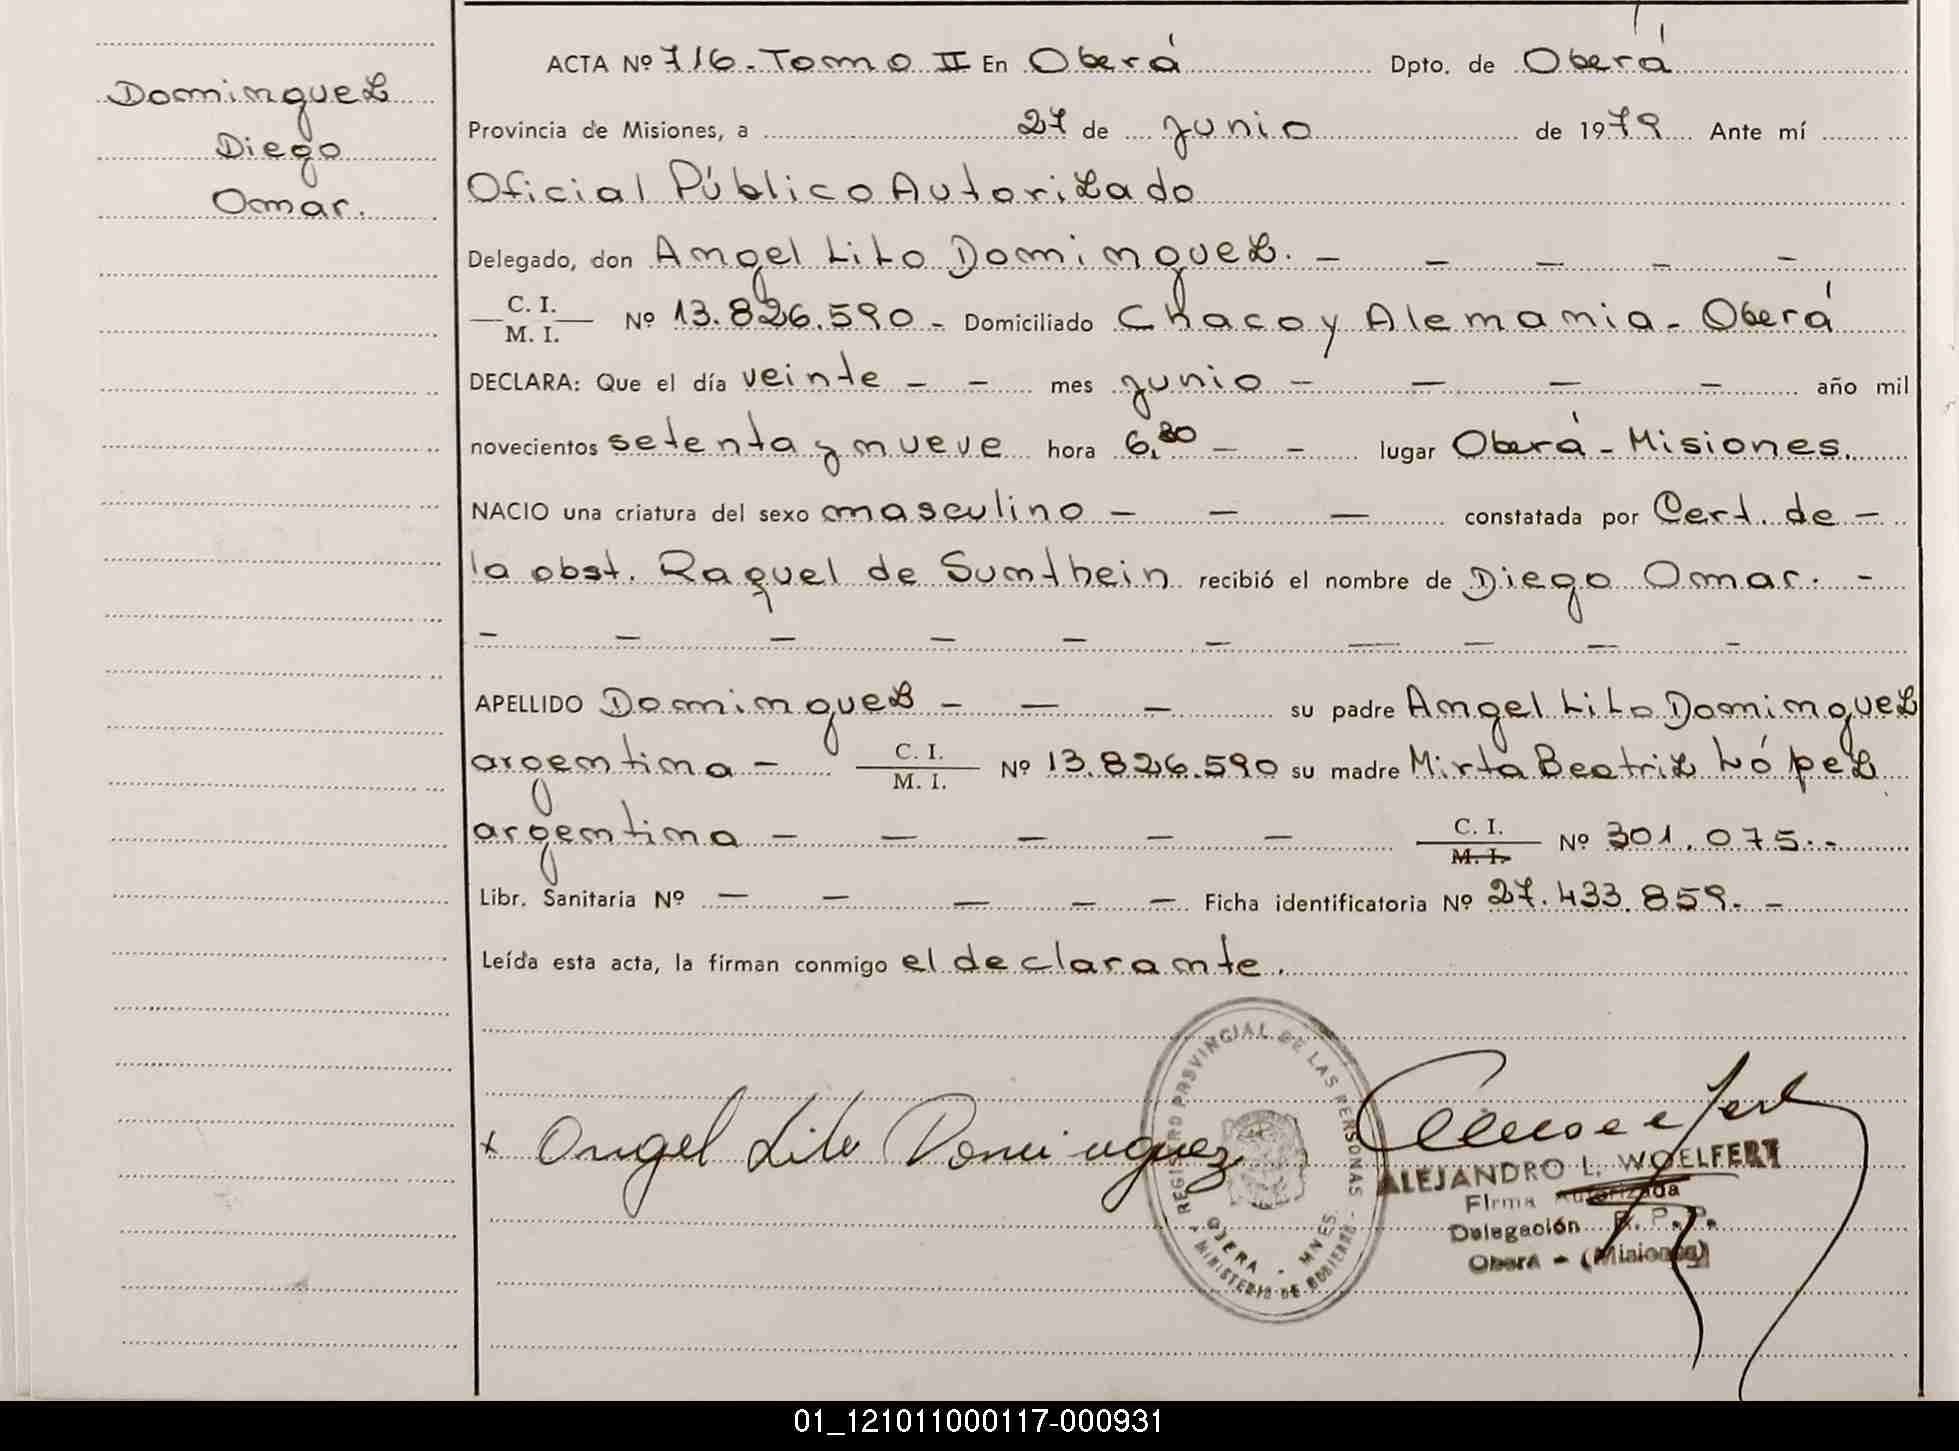 Dominguez
Diego
Omar.
ACTA Nº 716. Tomo II En Oberá Dpto. de Oberá
Provincia de Misiones, a 27 de junio de 1979 Ante mí
Oficial Público Autorizado
Delegado, don Angel Lito Dominguez. - - - - -
C. I.
M. I.
Nº 13.826.590 - Domiciliado Chaco y Alemania - Oberá
DECLARA: Que el día veinte - - mes junio - - - - año mil
novecientos setenta y nueve hora 6,30 - - lugar Oberá - Misiones.
NACIO una criatura del sexo masculino - - - constatada por Cert. de -
la obst. Raquel de Sumthein recibió el nombre de Diego Omar. -
- - - - - - - - - -
APELLIDO Dominguez - - - su padre Angel Lito Dominguez
argentina - C. I.
M. I. Nº 13.826.590 su madre Mirta Beatriz López
argentina - - - - - C. I.
M. I. Nº 301.075.-
Libr. Sanitaria Nº - - - - - Ficha identificatoria Nº 27.433.859. -
Leída esta acta, la firman conmigo el declarante.
REGISTRO PROVINCIAL DE LAS PERSONAS
x Angel Lito Dominguez
ALEJANDRO L. WOELFERT
Firma Autorizada
Delegación R. P. P.
Oberá - (Misiones)
OBERA - MNES.
MINISTERIO DE GOBIERNO
01_121011000117-000931